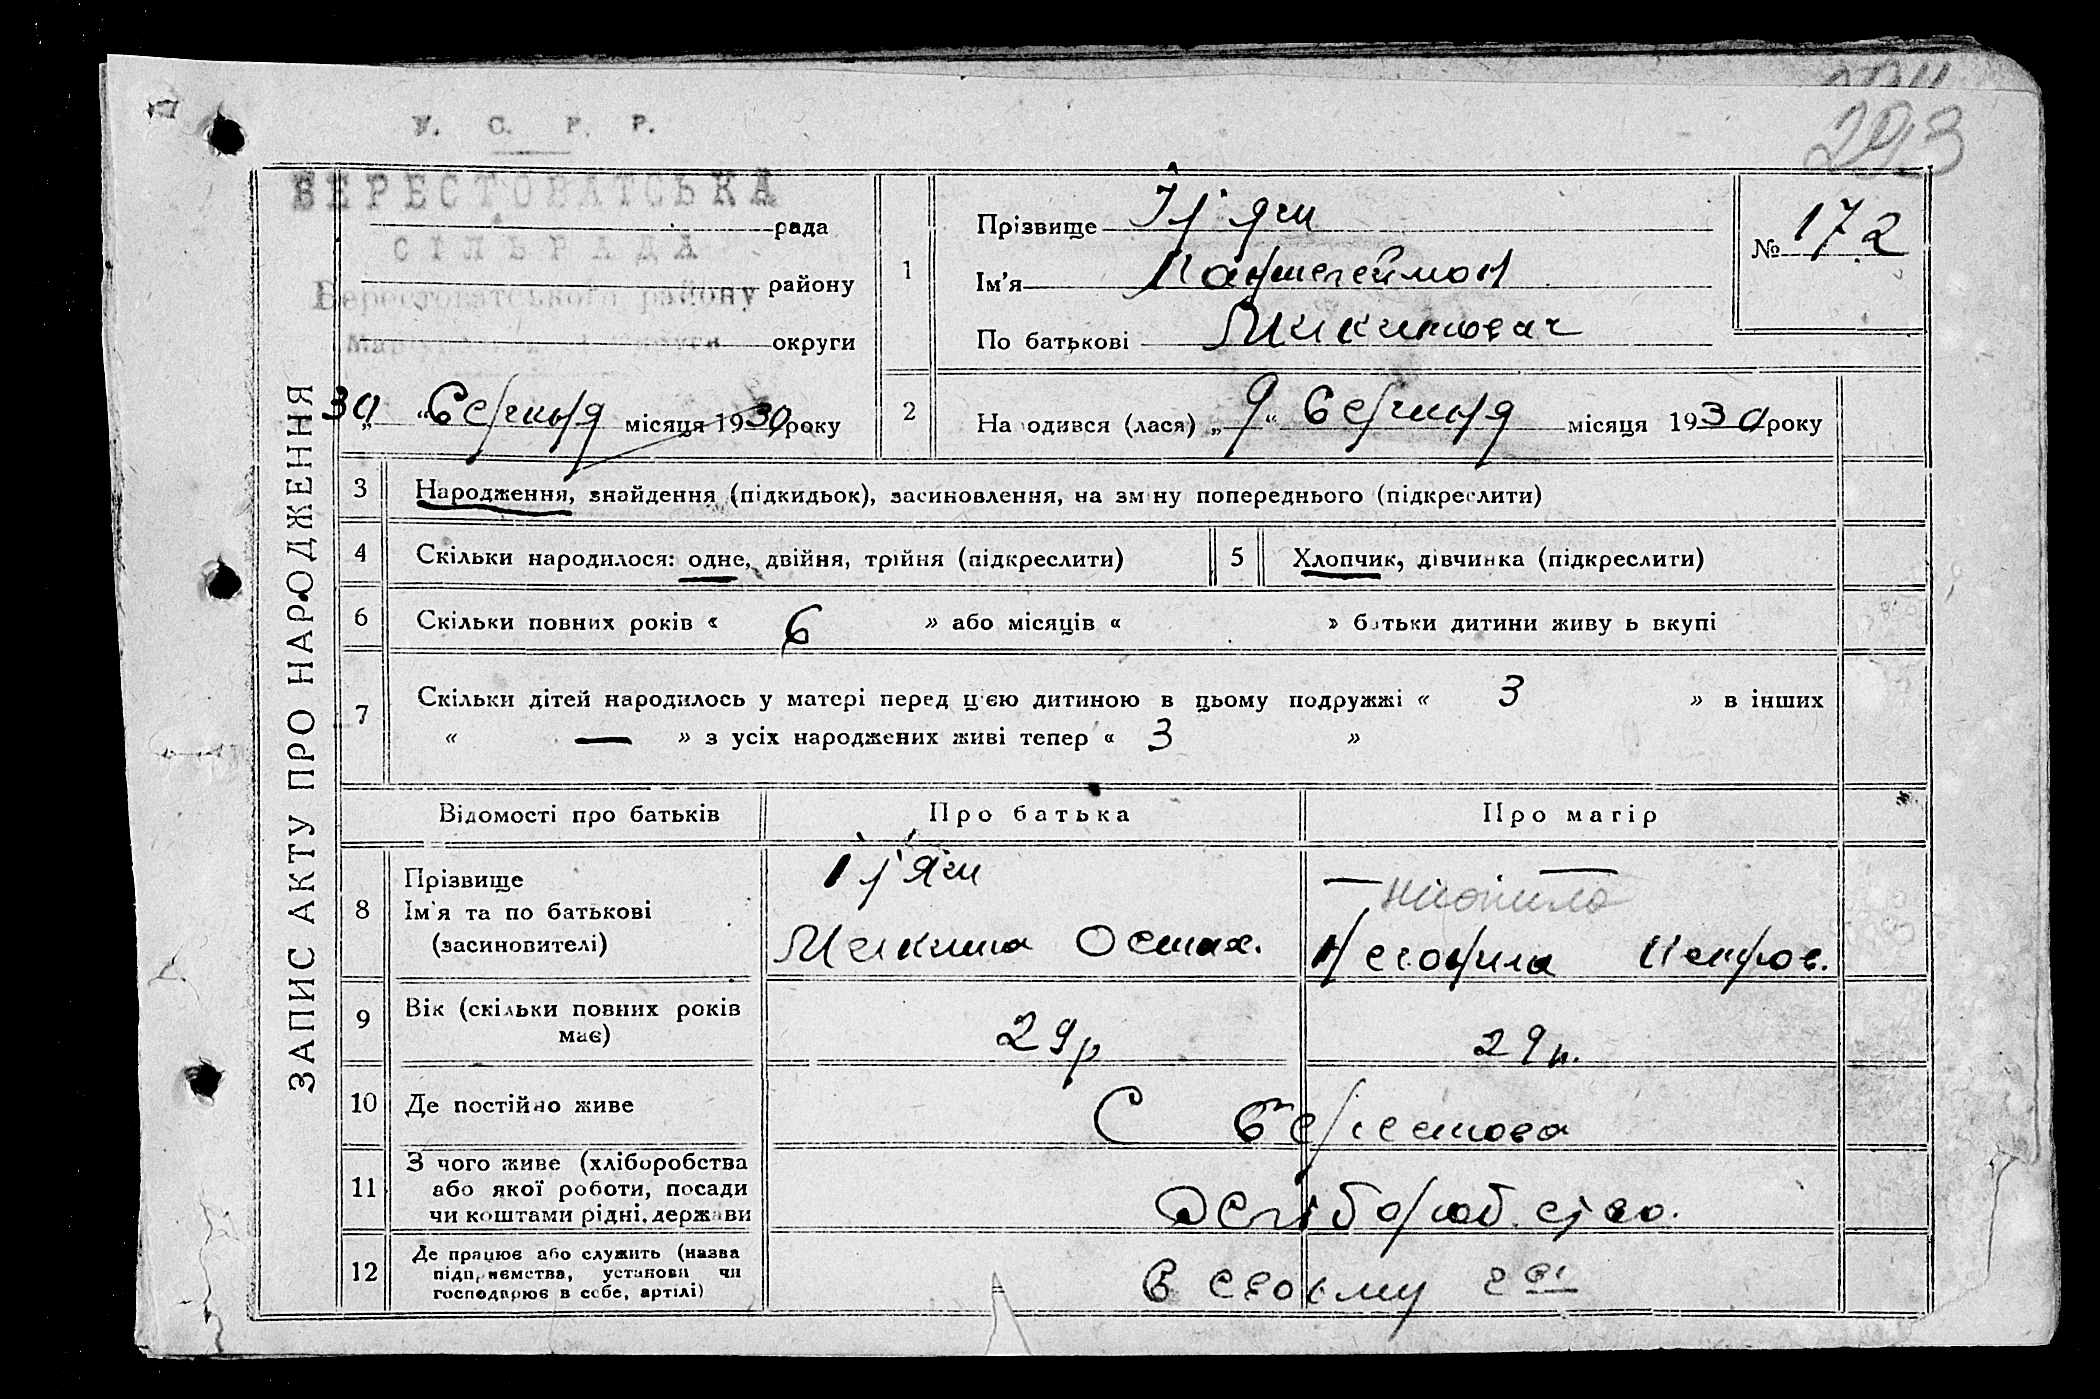 У. С. Р. Р.
293
БЕРЕСТОВАТСЬКА
рада
СІЛЬРАДА
району
Берестоватського району
округи
30 „ “ Серпня місяця 1930 року
ЗАПИС АКТУ ПРО НАРОДЖЕННЯ
1
Прізвище
Ім'я Пантелеймон
По батькові Микитович
№ 172
2
На одився (лася) „ 9 “ Серпня місяця 1930 року
3 Народження, знайдення (підкидьок), засиновлення, на зм ну попереднього (підкреслити)
4 Скільки народилося: одне, двійня, трійня (підкреслити) 5 Хлопчик, дівчинка (підкреслити)
6 Скільки повних років « 6 » або місяців « » б тьки дитини живу ь вкупі
7 Скільки дітей народилось у матері перед ц'єю дитиною в цьому подружжі « 3 » в інших
« — » з усіх народжених живі тепер « 3 »
Відомості про батьків Про батька Про матір
8 Прізвище
Ім'я та по батькові
(засиновителі)
Микита Остах. Петров.
9 Вік (скільки повних років
має)
29р 29р.
10 Де постійно живе С Берестова
11 З чого живе (хліборобства
або якої роботи, посади
чи коштами рідні, держави
12 Де працює або служить (назва
підприємства, установи чи
господарює в себе, артілі)
В своєму